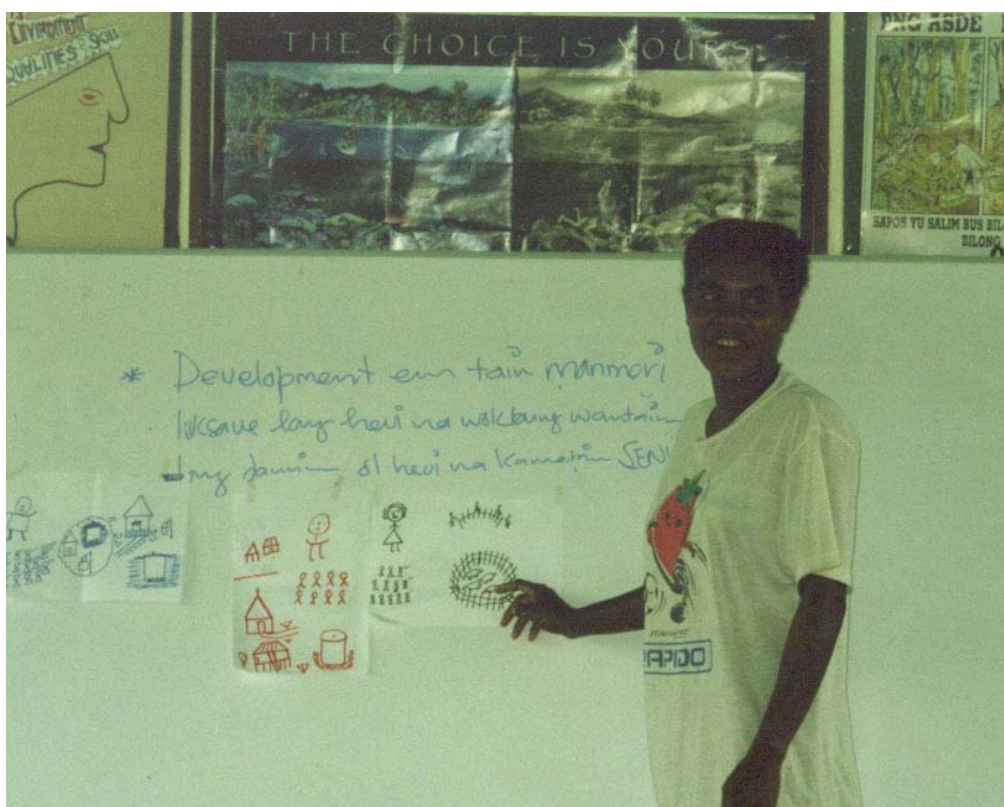 ENVIROMENT
QUALITIES + Skill
THE CHOICE IS YOURS
PNG ASDE
SAPOS YU SALIM BUS BILO
BILONG
* Development em taim manmeri
luksave long hevi na wok bung wantaim
long daunim ol hevi na kamapim SEN
RAPIDO